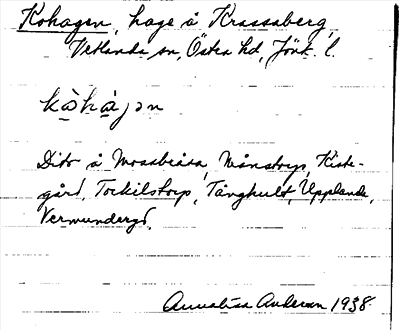 Kohagen, hage å Krassaberg,
Vetlanda sn, Östra hd, Jönk. l.
kȧ̀hȧ̀jən
Dito å Mossbråsa, Månstorp, Kiste-
gård, Torkilstorp, Tånghult, Uppland,
Vermundergd.
Annalisa Anderson 1938.